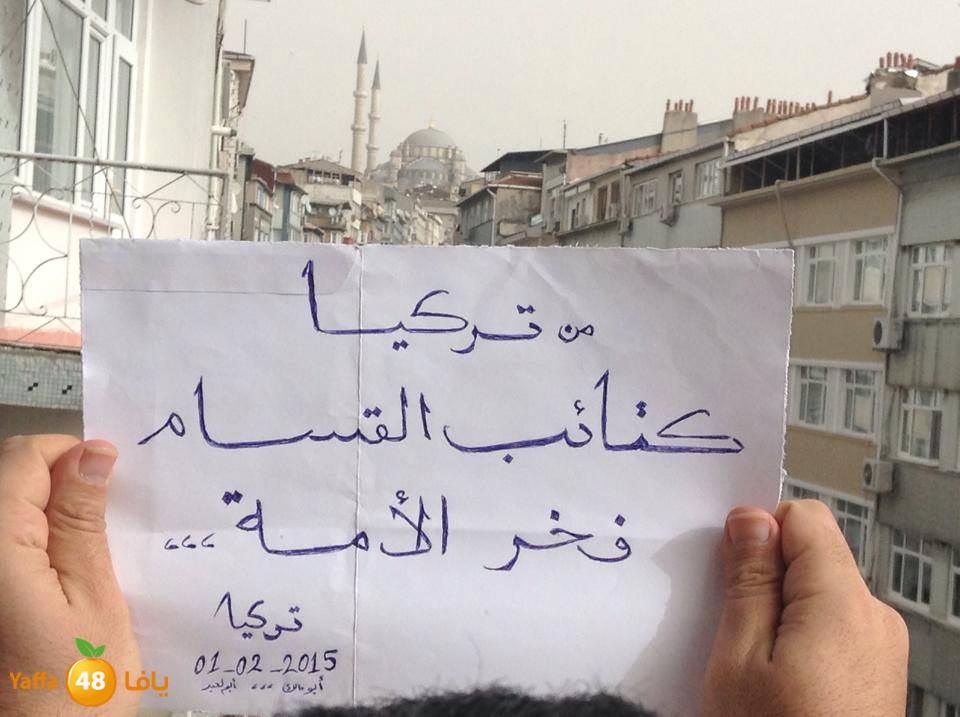 من تركيا
كتائب القسام
فخر الأمة ،،،
تركيا
01_02_2015
أبو مالك ،،،
Yaffa 48 يافا